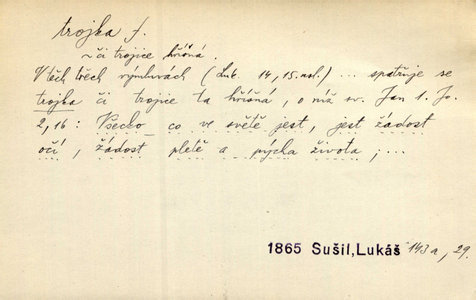 trojka f.
~ či trojice hříšná.
V těch třech výmluvách (Luk. 14, 15. nsl.) ... spatřuje se
trojka či trojice ta hříšná, o níž sv. Jan 1. Jo.
2, 16: Všecko co ve světě jest, jest žádost
očí, žádost pletě a pýcha života; ...
1865 Sušil, Lukáš 143a, 29.